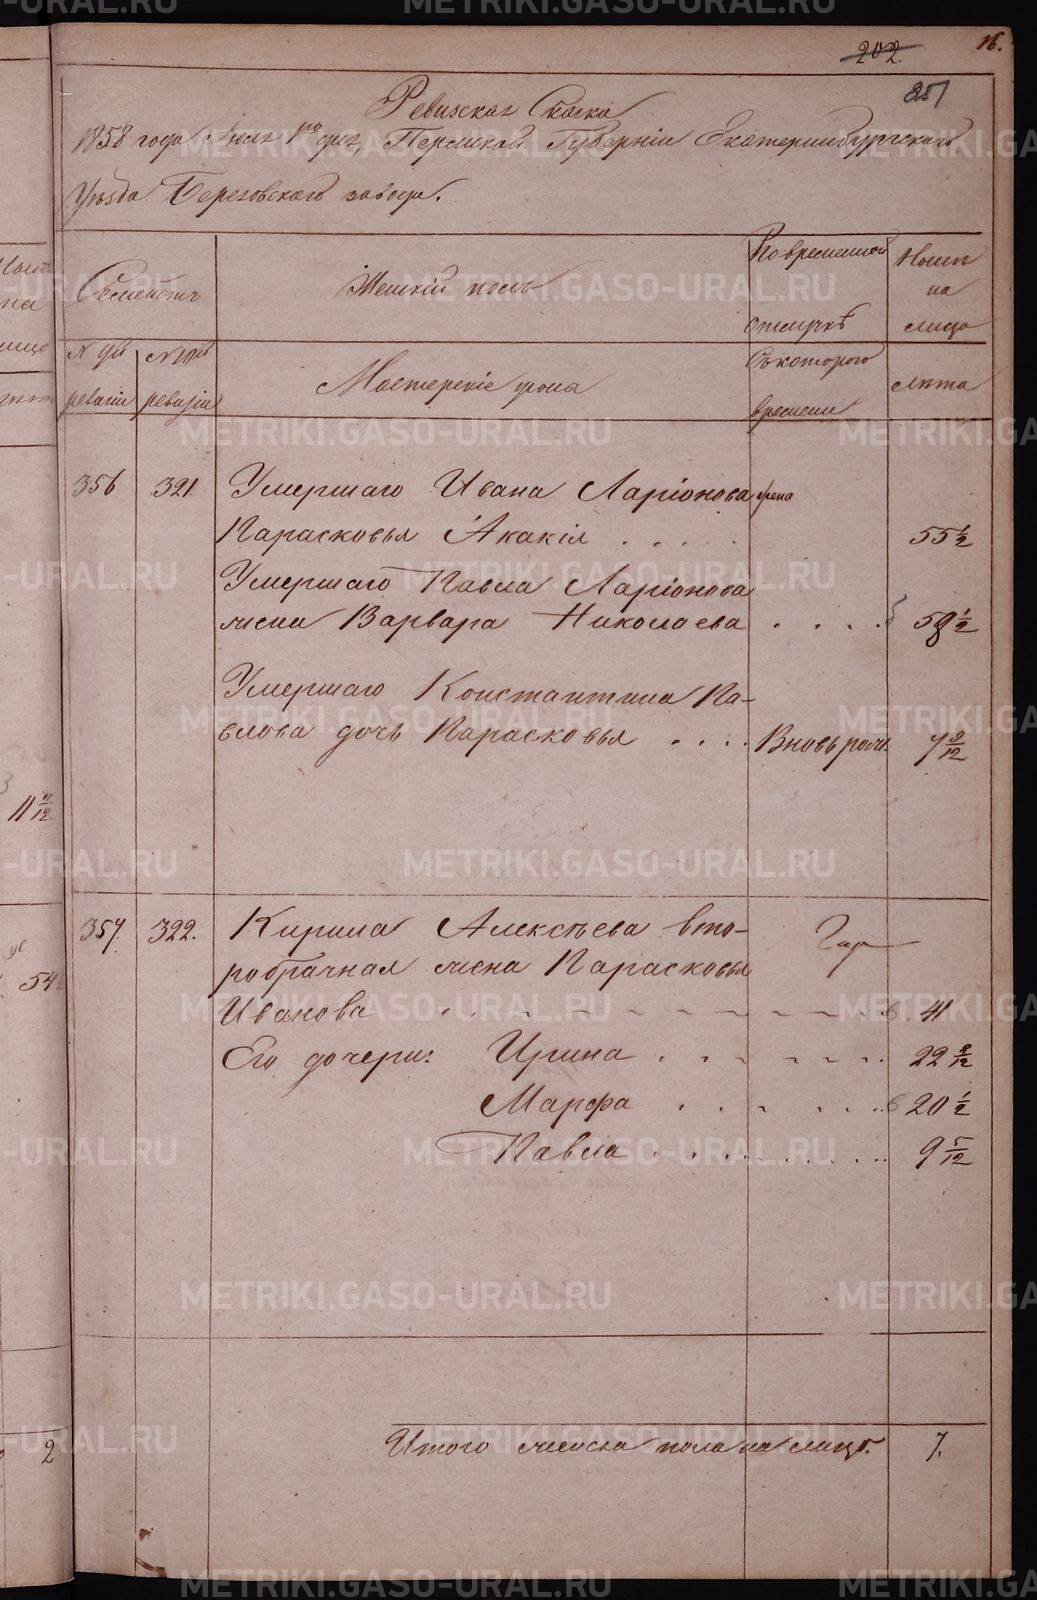 202.
16.
251
Ревизская Сказка
1858 года Июля 1го дня, Пермской Губернiи Екатеринбургскаго
Уѣзда Березовскаго завода.
Семействъ
Женскiй полъ
Во временной
отлучкѣ
Нынѣ
на
лицо
№ 9й
ревизiи
№ 10й
ревизiи
Мастерскiе жона
Съ котораго
времени
Лѣта
356
321
Умершаго Ивана Ларiонова жена
Парасковья Акакiя . . . . .
55 1/2
Умершаго Павла Ларiонова
жена Варвара Николаева . . . .
58 1/2
Умершаго Константина Па-
влова дочь Парасковья . . . .
Вновь рожд.
7 9/12
357.
322.
Кирила Алексѣева вто-
робрачная жена Парасковья
Иванова
41
Его дочери: Ирина . . . . . .
22 9/12
Марфа . . . . . .
20 1/2
Павла . . . . . . . .
9 5/12
Итого женска пола на лицо.
7.
11 11/12
54
2
METRIKI.GASO-URAL.RU